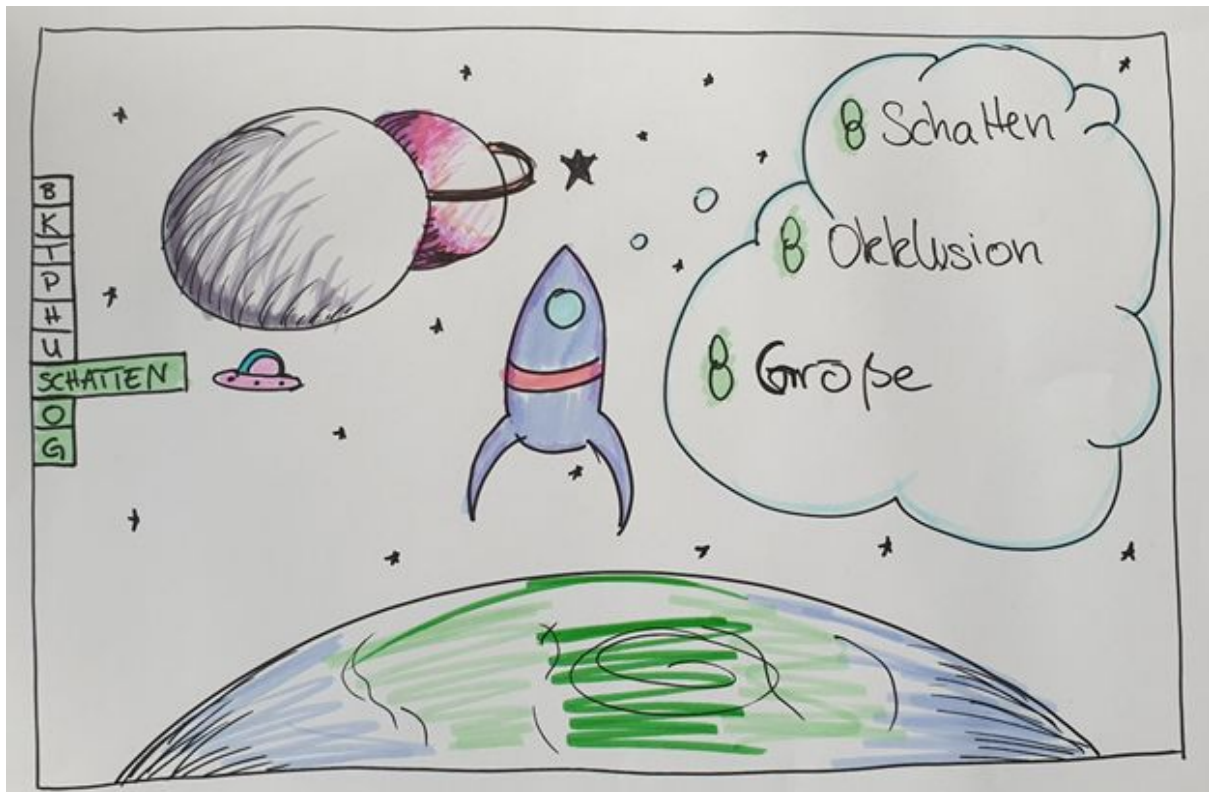 B
K
T
P
H
U
SCHATTEN
O
G
Schatten
Okklusion
Größe